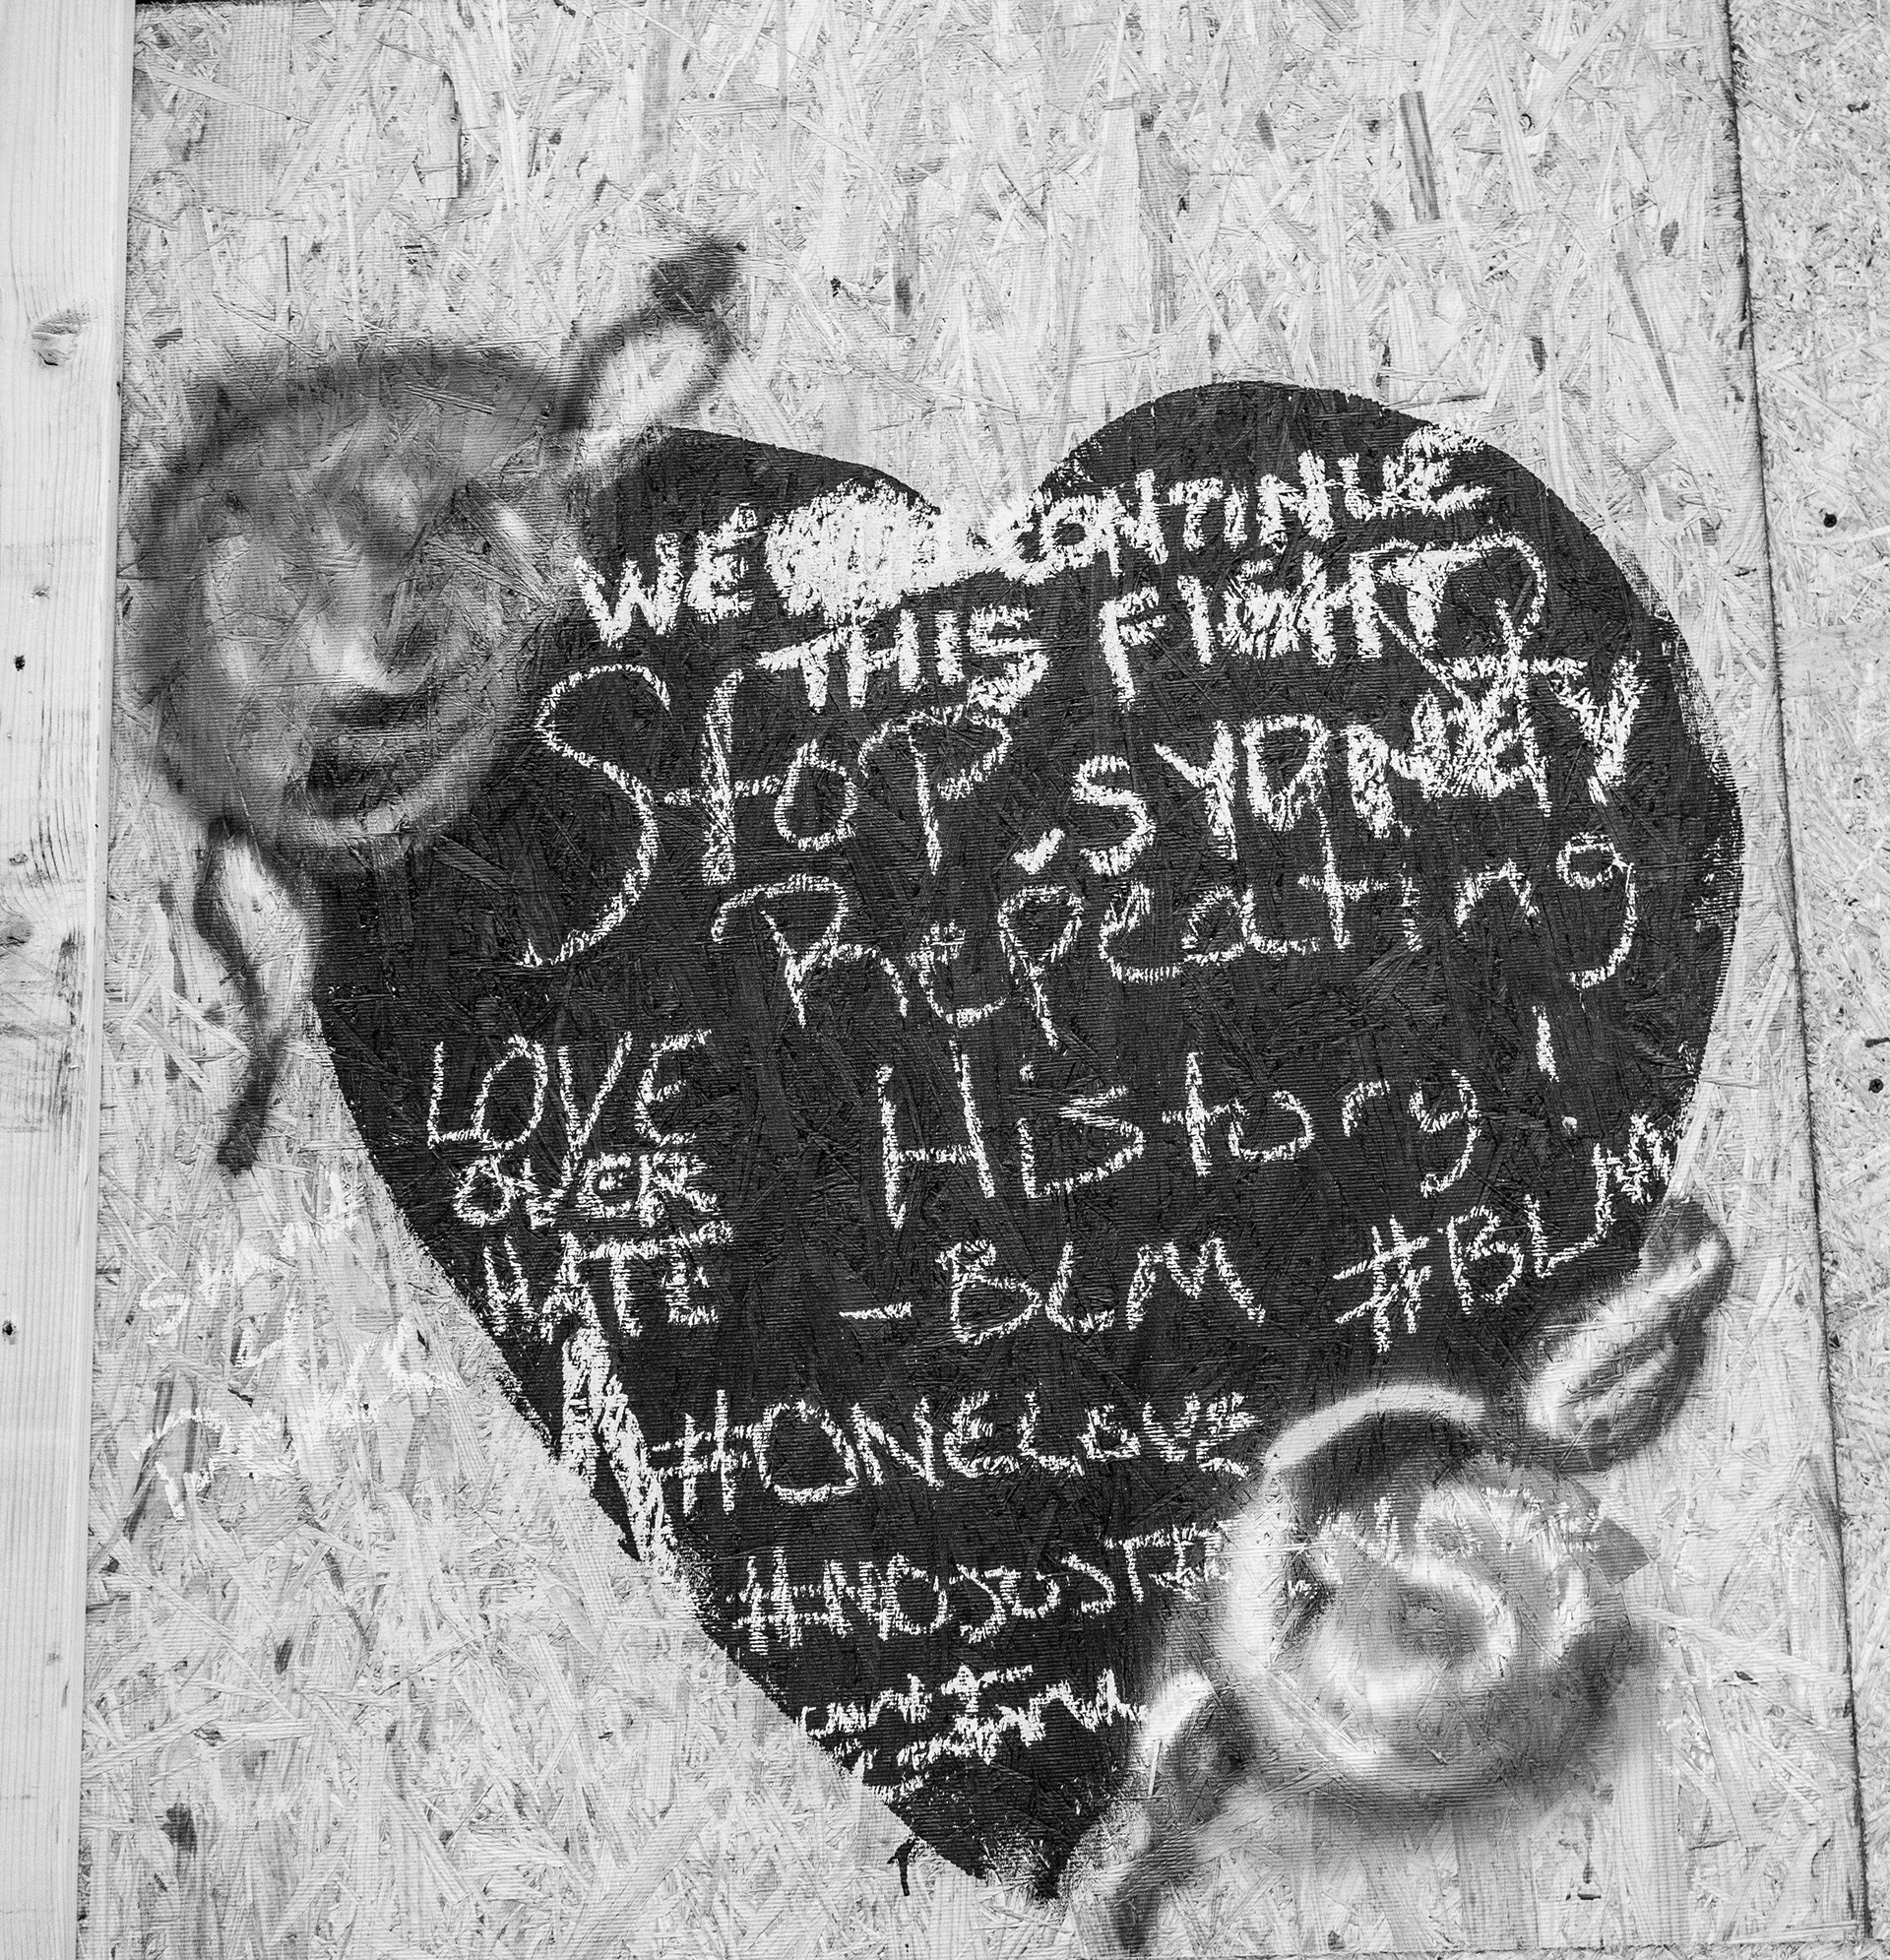 WE CONTINUE
THIS FIGHT
SYDNEY
Stop
Repeating
History!
LOVE
OVER
HATE
-BLM
#BLM
#ONELOVE